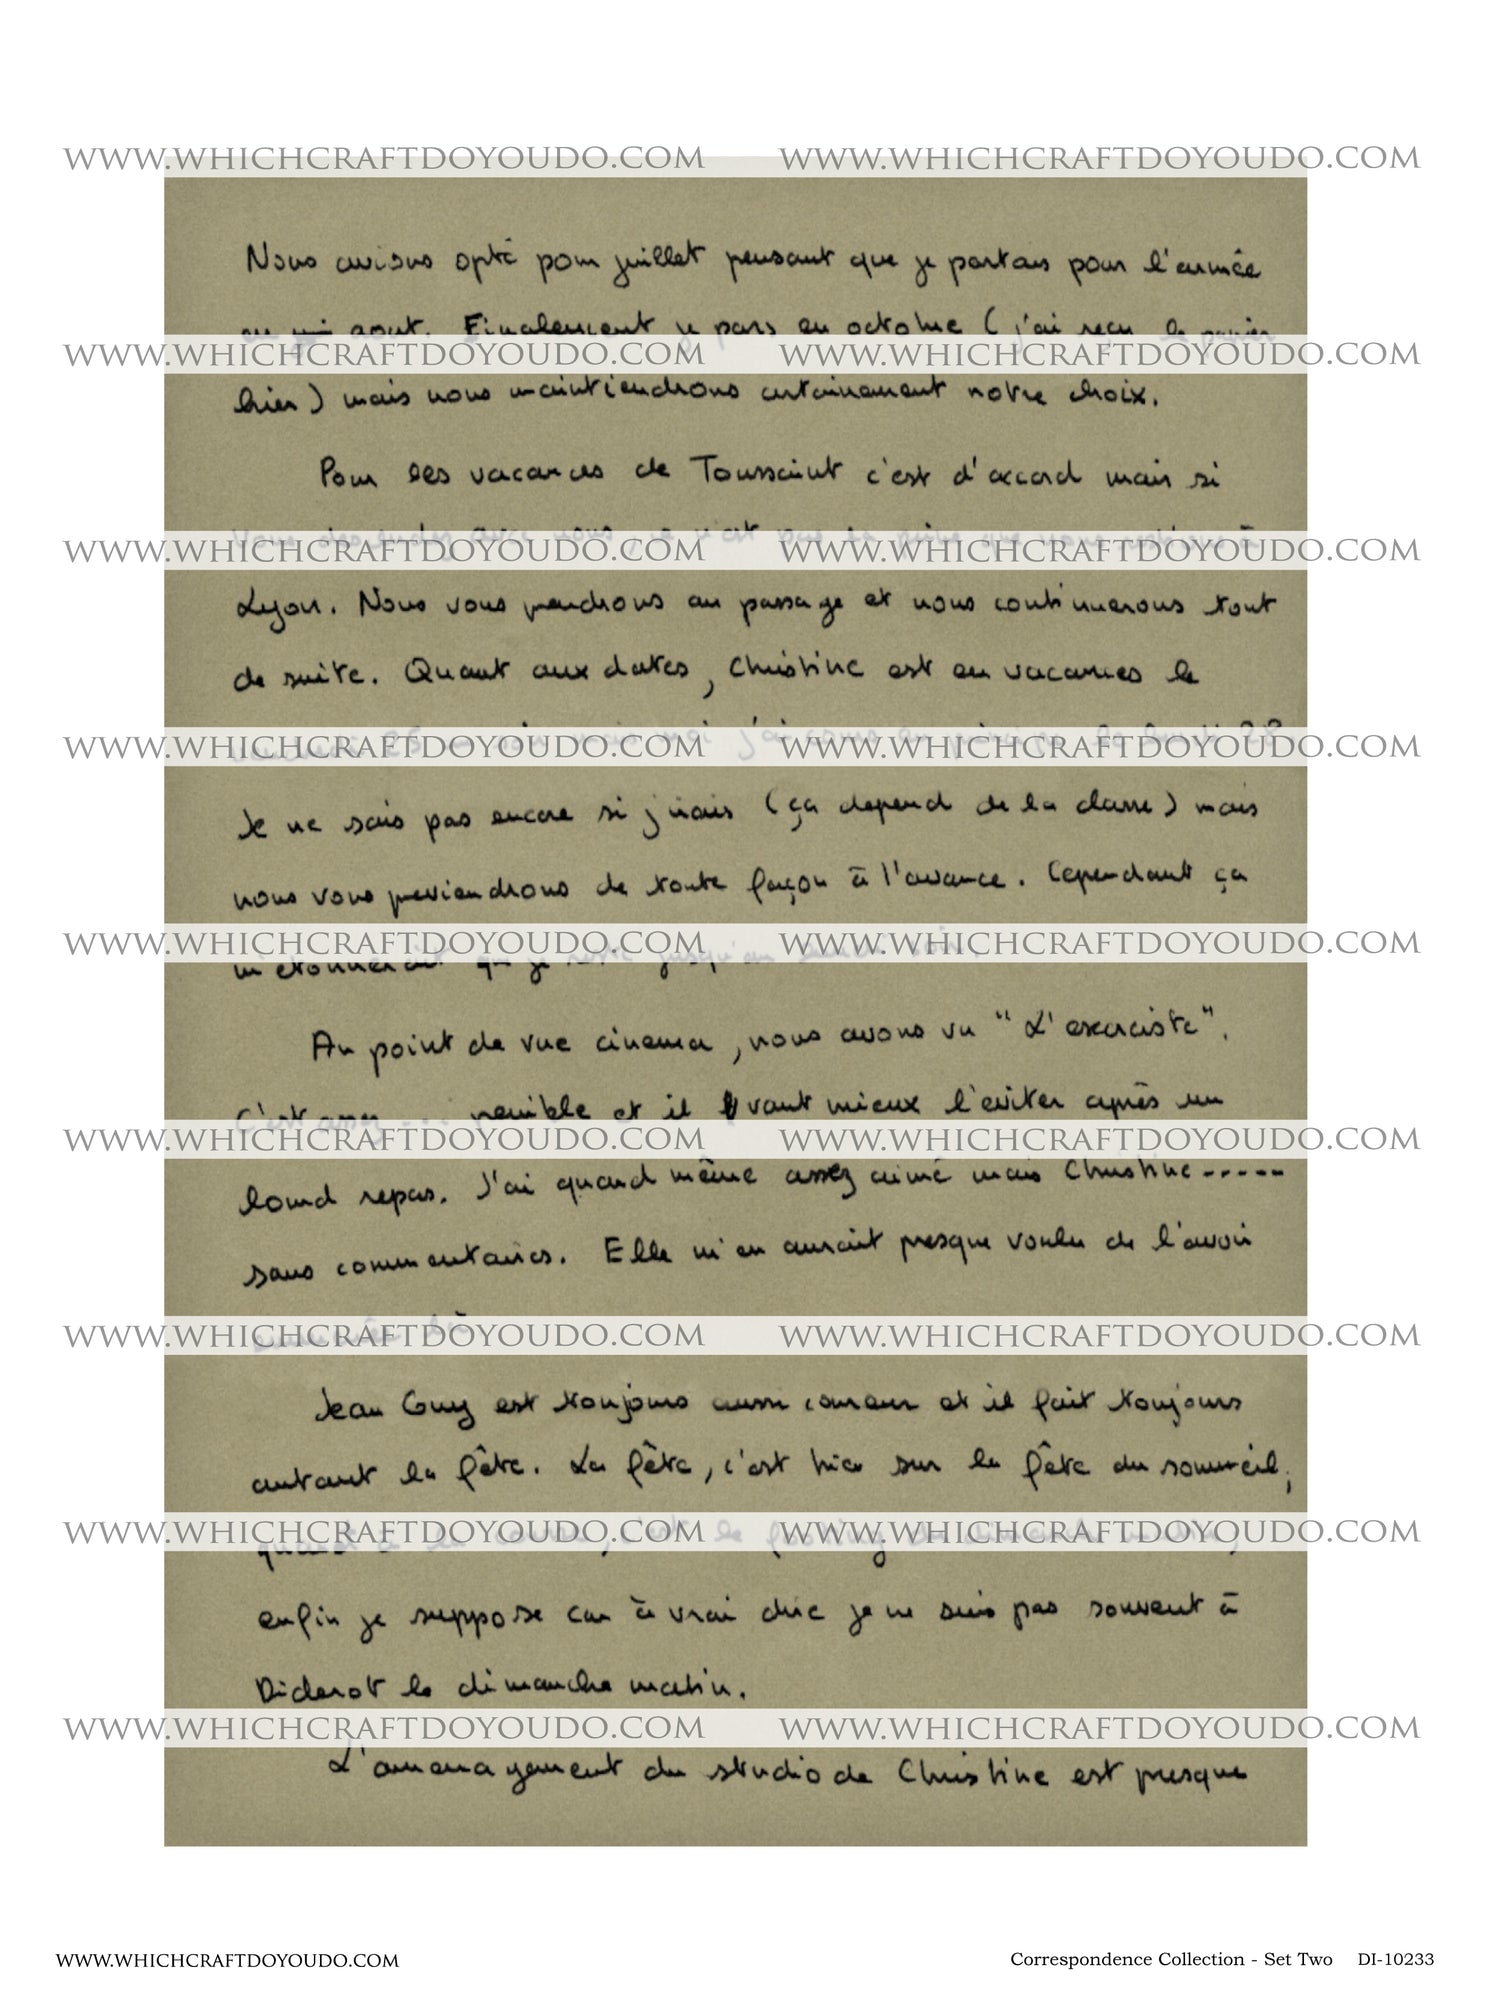 WWW.WHICHCRAFTDOYOUDO.COM WWW.WHICHCRAFTDOYOUDO.COM
Nous avions opté pour juillet pensant que je partais pour l'armée
en août. Finalement je pars en octobre (j'ai reçu le papier
WWW.WHICHCRAFTDOYOUDO.COM WWW.WHICHCRAFTDOYOUDO.COM
hier) mais nous maintiendrons certainement notre choix.
Pour les vacances de Toussaint c'est d'accord mais si
vous descendez avec nous, ce n'est pas la peine que vous à
WWW.WHICHCRAFTDOYOUDO.COM WWW.WHICHCRAFTDOYOUDO.COM
Lyon. Nous vous prendrons au passage et nous continuerons tout
de suite. Quant aux dates, Christine est en vacances le
vendredi 25 au soir mais moi j'ai cours en principe le lundi 28
WWW.WHICHCRAFTDOYOUDO.COM WWW.WHICHCRAFTDOYOUDO.COM
Je ne sais pas encore si j'irais (ça depend de la classe) mais
nous vous previendrons de toute façon à l'avance. Cependant ça
WWW.WHICHCRAFTDOYOUDO.COM WWW.WHICHCRAFTDOYOUDO.COM
m'etonnerait que je reste jusqu'au soir.
Au point de vue cinema, nous avons vu "L'exorciste".
C'est assez ... penible et il vaut mieux l'eviter après un
WWW.WHICHCRAFTDOYOUDO.COM WWW.WHICHCRAFTDOYOUDO.COM
lourd repas. J'ai quand même assez aimé mais Christine -----
sans commentaires. Elle m'en aurait presque voulu de l'avoir
WWW.WHICHCRAFTDOYOUDO.COM WWW.WHICHCRAFTDOYOUDO.COM
Jean Guy est toujours aussi coureur et il fait toujours
autant la fête. La fête, c'est hier sur la fête du sommeil,
WWW.WHICHCRAFTDOYOUDO.COM WWW.WHICHCRAFTDOYOUDO.COM
quant à la course, c'est le footing du dimanche matin,
enfin je suppose car à vrai dire je ne suis pas souvent à
Diderot le dimanche matin.
WWW.WHICHCRAFTDOYOUDO.COM WWW.WHICHCRAFTDOYOUDO.COM
L'amenagement du studio de Christine est presque
WWW.WHICHCRAFTDOYOUDO.COM Correspondence Collection - Set Two DI-10233